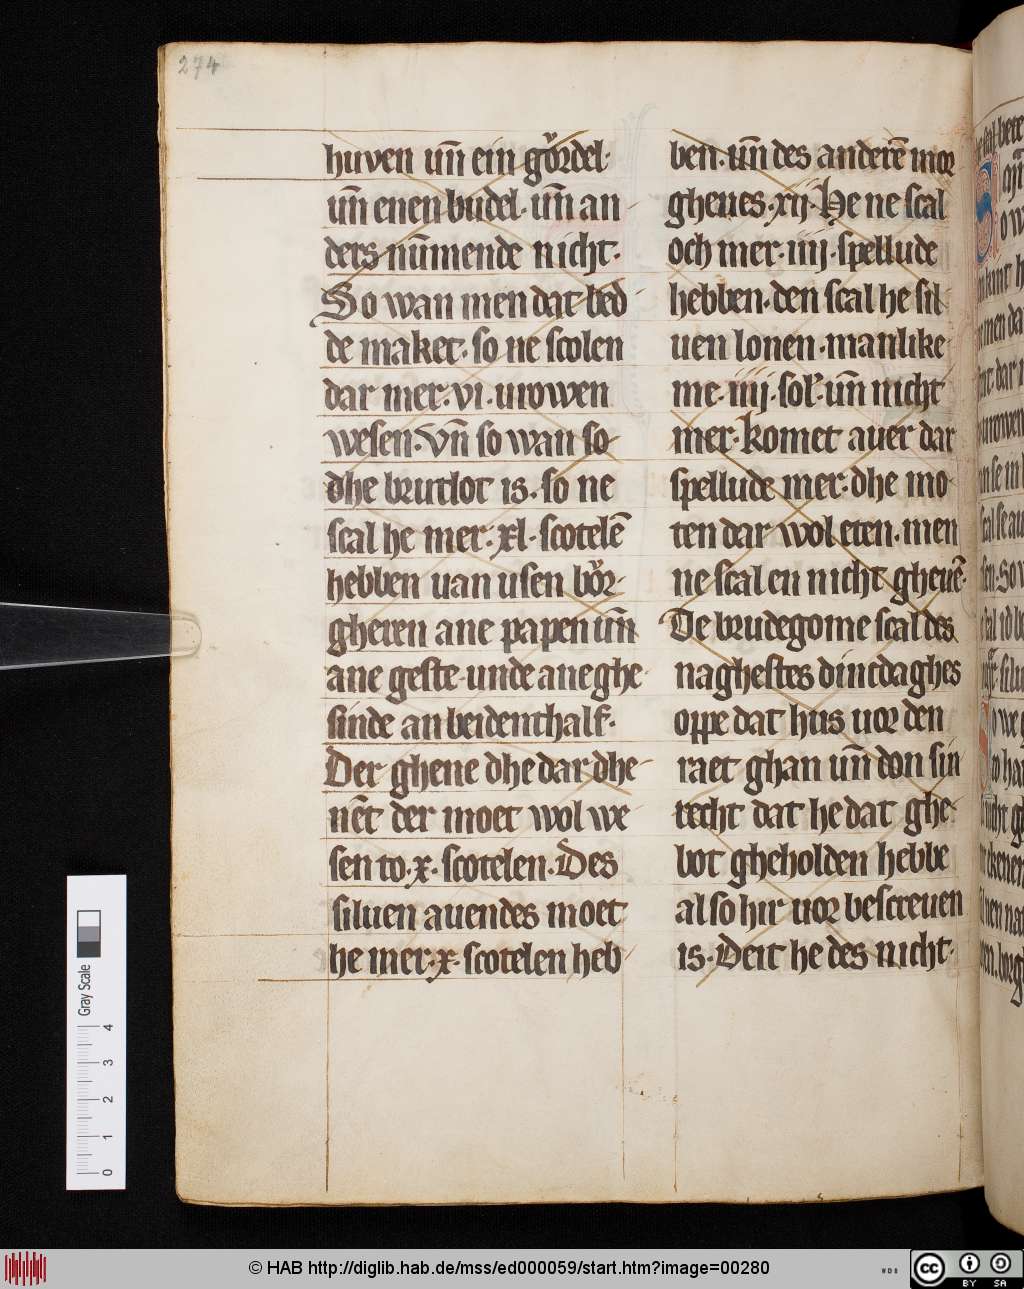 274
huven un̄ ein gördel·
un̄ enen budel· un̄ an
ders nūmende nicht·
So wan men dat bed
de maket· so ne scolen
dar mer· vi· urowen
wesen· Vn̄ so wan so
dhe brutlot is· so ne
scal he mer· xl· scotelē
hebben uan usen bör
gheren ane papen un̄
ane geste· unde ane ghe
sinde an beidenthalf·
Der ghene dhe dar dhe
nēt der moet wol we
sen to· x· scotelen· Des
siluen auendes moet
he mer· x· scotelen heb
ben· un̄ des anderē mor
gheues· xij· He ne scal
och mer· iiij· spellude
hebben· den scal he sil
uen lonen· manlike
me· iiij· sol'· un̄ nicht
mer· komet auer dar
spellude mer· dhe mo
ten dar wol eten· men
ne scal en nicht gheuē·
De brudegome scal des
naghestes dincdaghes
oppe dat hus uor den
raet ghan un̄ don sin
recht dat he dat ghe
bot gheholden hebbe
also hir uor bescreuen
is· Deit he des nicht·
Gray Scale
0 1 2 3 4
© HAB http://diglib.hab.de/mss/ed000059/start.htm?image=00280
WDB
cc
BY SA